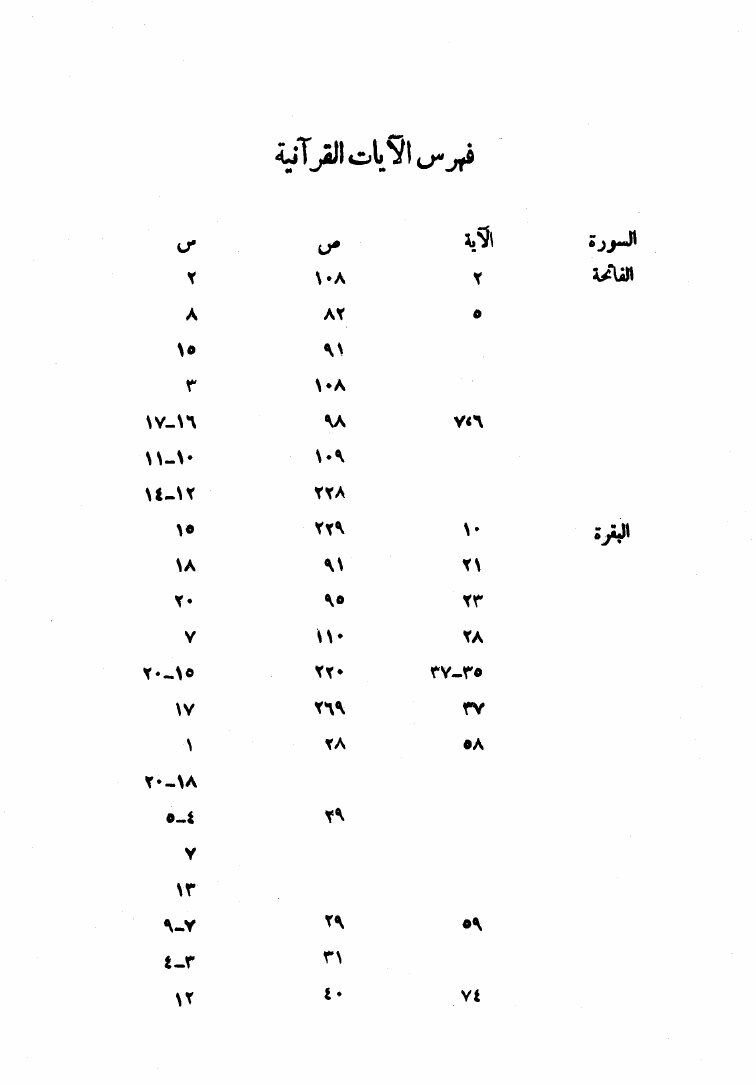 فهرس الآيات القرآنية
السورة الآية ص س
الفاتحة ٢ ١٠٨ ٢
٥ ٨٢ ٨
٩١ ١٥
١٠٨ ٣
٧٤٦ ٩٨ ١٦–١٧
١٠٩ ١٠–١١
٢٢٨ ١٢–١٤
البقرة ١٠ ٢٢٩ ١٥
٢١ ٩١ ١٨
٢٣ ٩٥ ٢٠
٢٨ ١١٠ ٧
٣٥–٣٧ ٢٢٠ ١٥–٢٠
٣٧ ٢٦٩ ١٧
٥٨ ٢٨ ١
١٨–٢٠
٢٩ ٤–٥
٧
١٣
٥٩ ٢٩ ٧–٩
٣١ ٣–٤
٧٤ ٤٠ ١٢